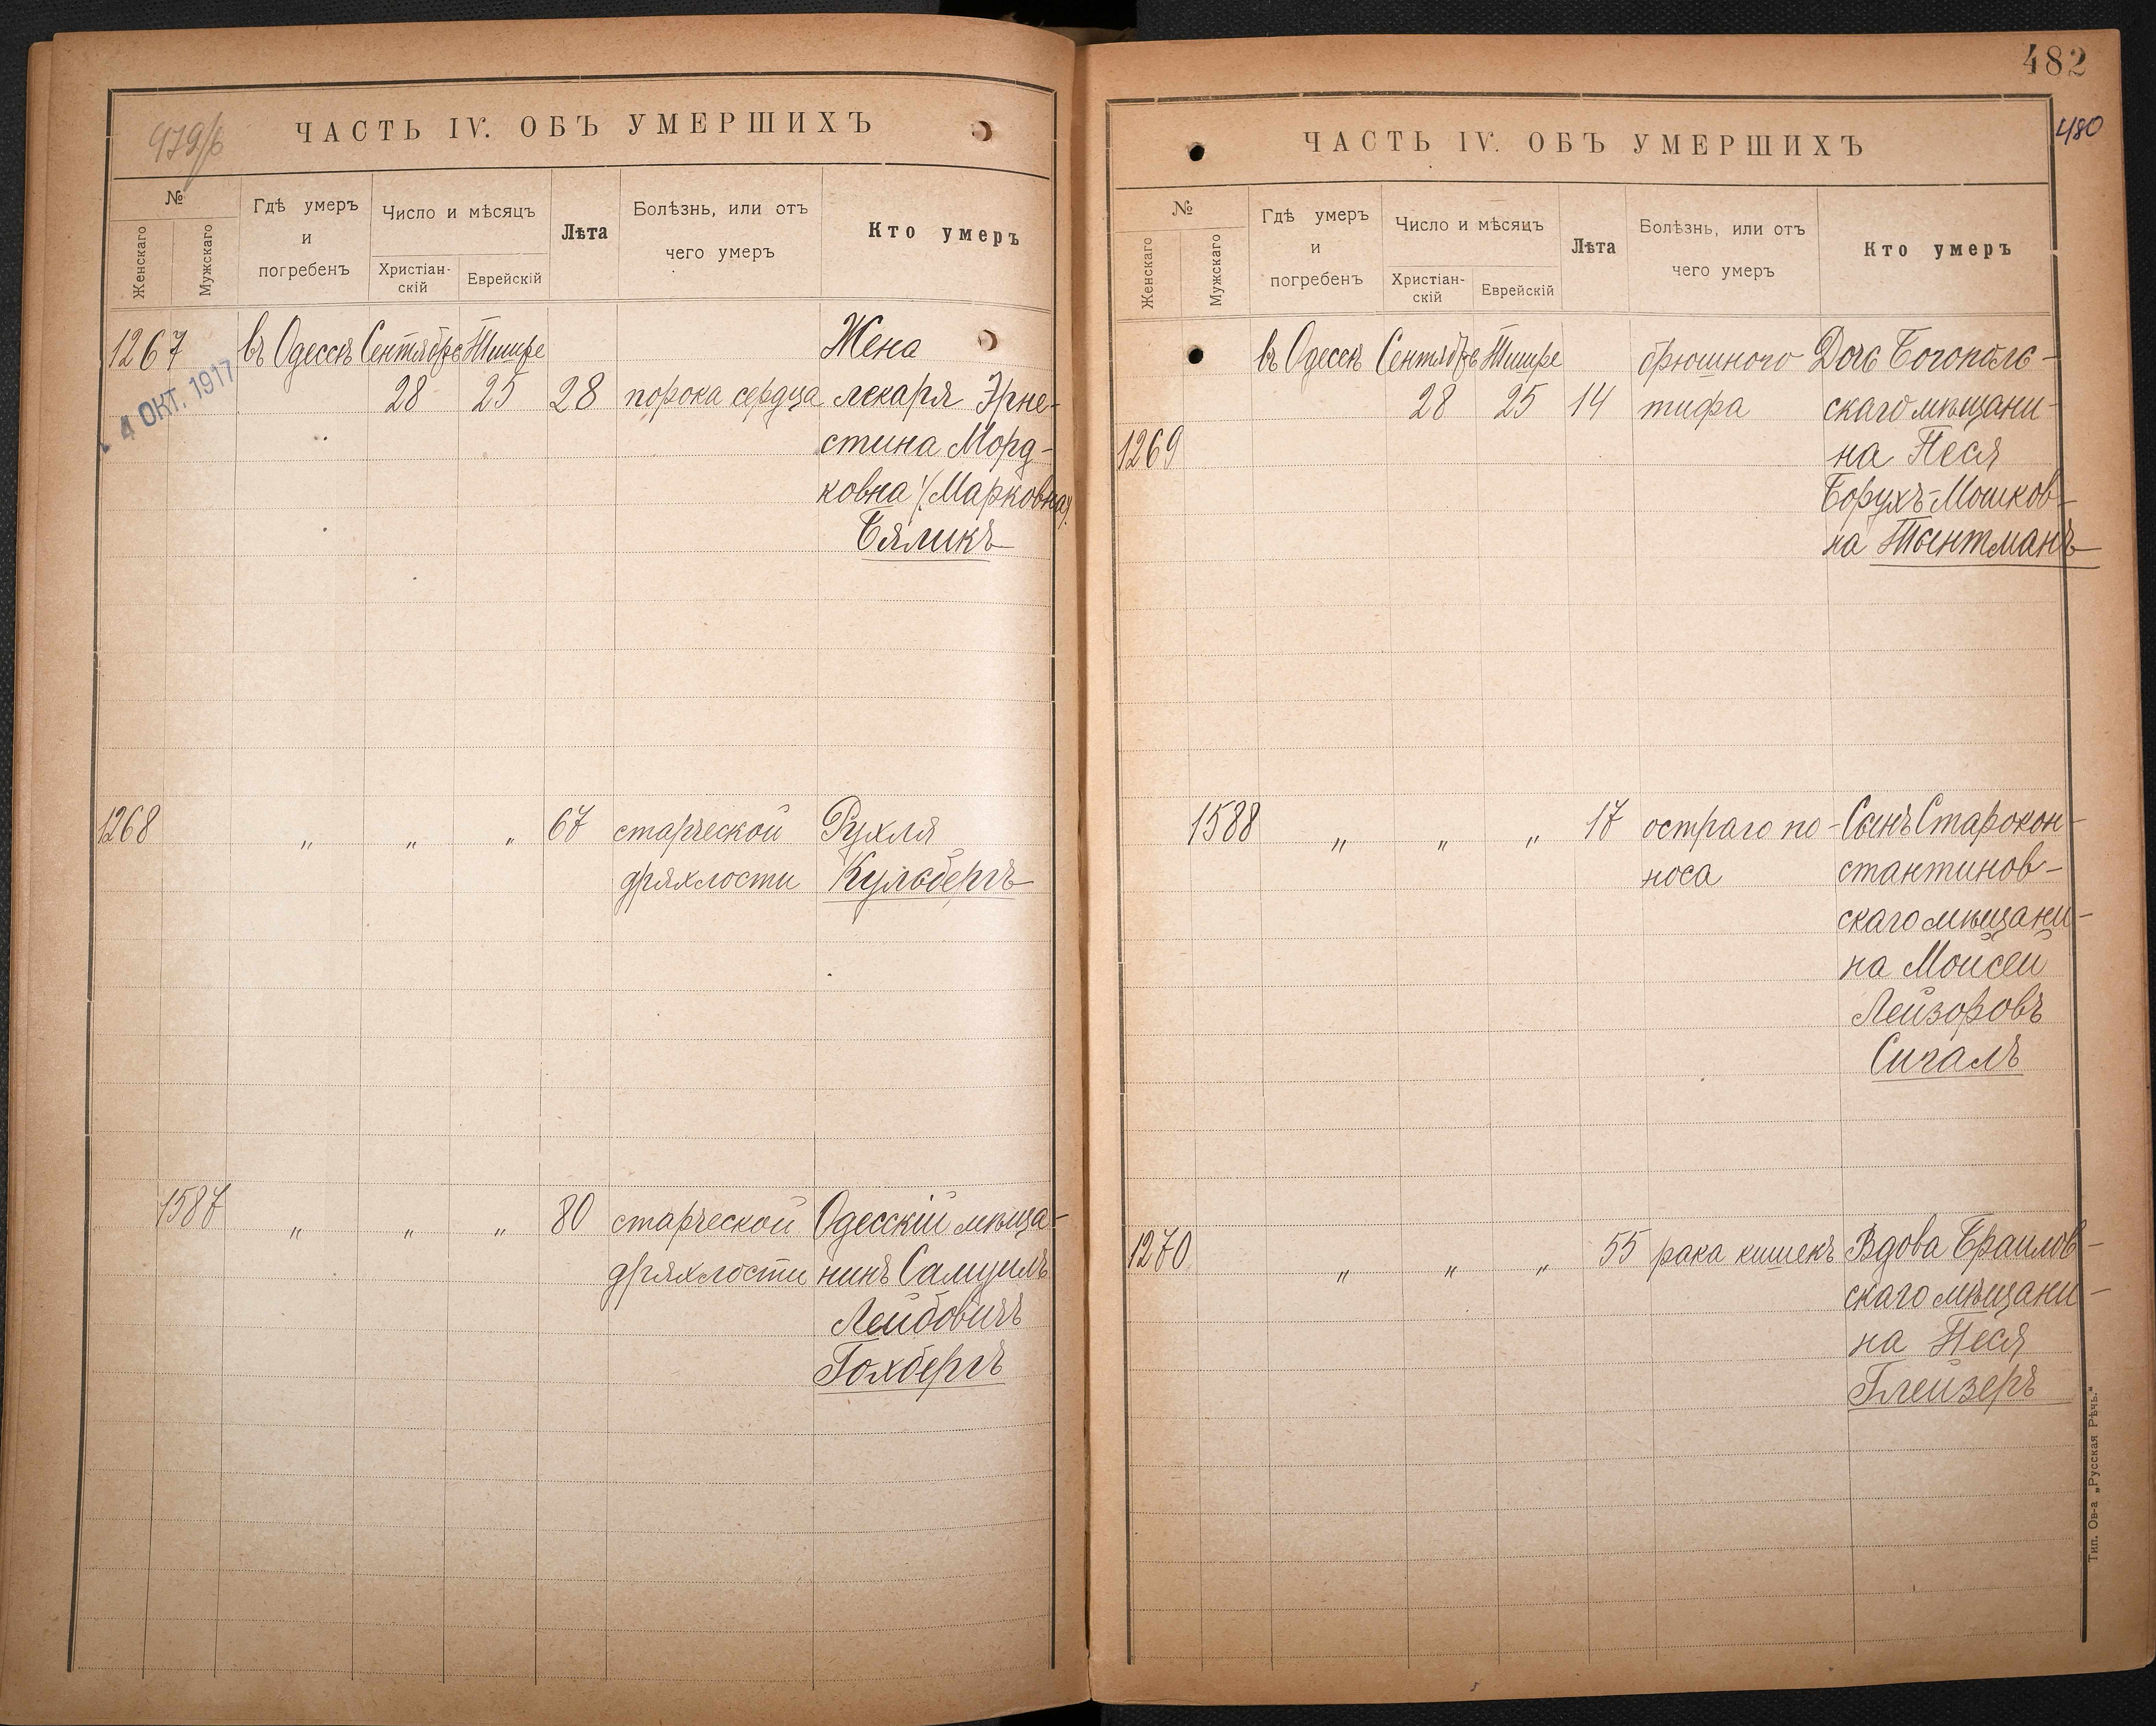 482
979/б
ЧАСТЬ IV. ОБЪ УМЕРШИХЪ
№
Женскаго
Мужскаго
Гдѣ умеръ
и
погребенъ
Число и мѣсяцъ
Христіан-
скій
Еврейскій
Лѣта
Болѣзнь, или отъ
чего умеръ
Кто умеръ
1267 въ Одессѣ Сентябрь Тишре Жена
4 ОКТ. 1917
28 25 28 порока сердца лекаря Эрне-
стина Морд-
ковна (Марковна)
Бяликъ
1268 " " " 67 старческой Рухля
дряхлости Кульбергъ
1587 " " " 80 старческой Одесскій мѣща-
дряхлости нинъ Самуилъ
Лейбовичъ
Голбергъ
480
ЧАСТЬ IV. ОБЪ УМЕРШИХЪ
№
Женскаго
Мужскаго
Гдѣ умеръ
и
погребенъ
Число и мѣсяцъ
Христіан-
скій
Еврейскій
Лѣта
Болѣзнь, или отъ
чего умеръ
Кто умеръ
въ Одессѣ Сентябрь Тишре брюшного Дочь Богополь-
28 25 14 тифа скаго мѣщани-
1269 на Песя
Борухъ-Мошков-
на Тентманъ
1588 " " " 17 остраго по- Сынъ Старокон-
носа стантинов-
скаго мѣщани-
на Мойсей
Лейзоровъ
Сигалъ
1270 " " " 55 рака кишекъ Вдова Браилов-
скаго мѣщани-
на Песя
Глейзеръ
Тип. Ов-а „Русская Рѣчь."